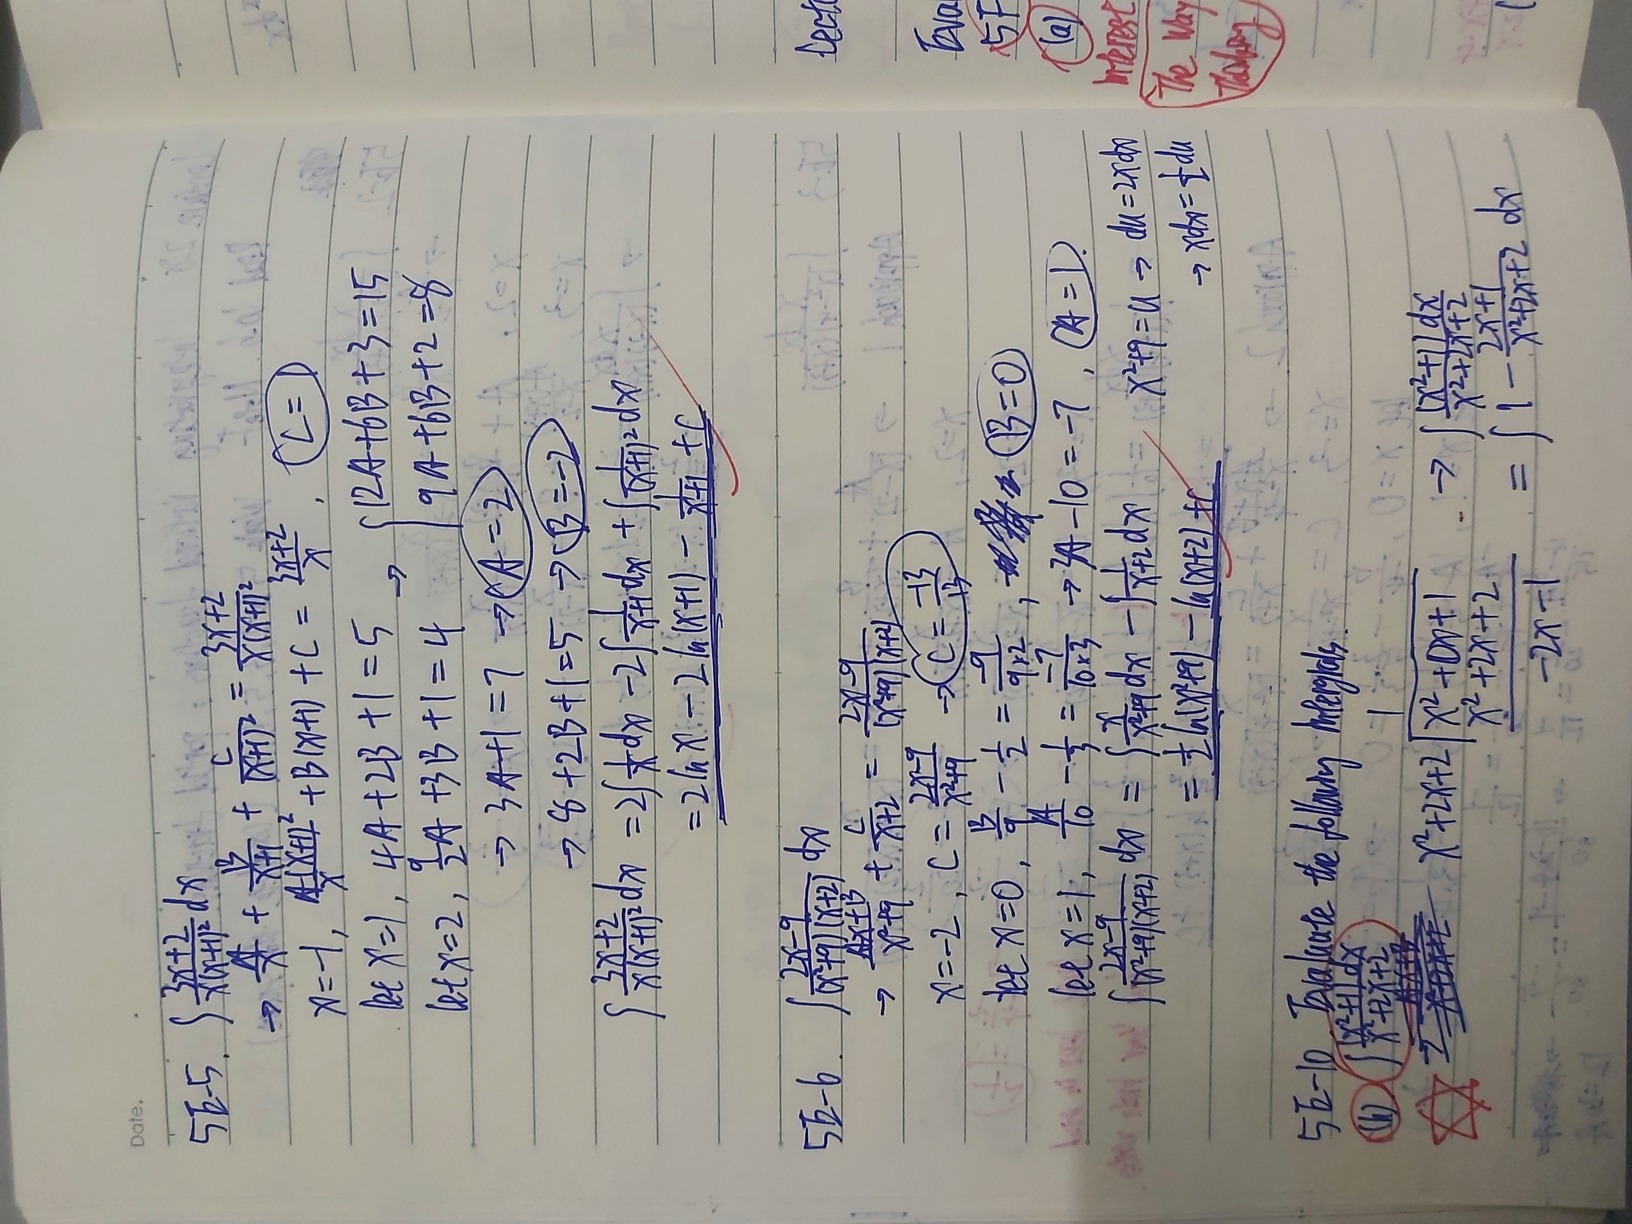 Date.
5E-5. ∫ (3x+2)/(x(x+1)²) dx
→ A/x + B/(x+1) + C/(x+1)² = (3x+2)/(x(x+1)²)
x=-1, A(x+1)²/x + B(x+1) + C = (3x+2)/x , C=1
let x=1, 4A+2B+1=5 → 12A+6B+3=15
let x=2, 9/2 A+3B+1=4 9A+6B+2=8
→ 3A+1=7 → A=2
→ 8+2B+1=5 → B=-2
∫ (3x+2)/(x(x+1)²) dx = 2∫ 1/x dx - 2∫ 1/(x+1) dx + ∫ 1/(x+1)² dx
= 2 ln x - 2 ln(x+1) - 1/(x+1) + c
5E-6. ∫ (2x-9)/((x²+9)(x+2)) dx
→ (Ax+B)/(x²+9) + C/(x+2) = (2x-9)/((x²+9)(x+2))
x=-2, C = (2x-9)/(x²+9) → C = -13/13
let x=0, B/9 - 1/2 = -9/(9×2), B=0
let x=1, A/10 - 1/3 = -7/(10×3) → 3A-10=-7, A=1.
∫ (2x-9)/((x²+9)(x+2)) dx = ∫ x/(x²+9) dx - ∫ 1/(x+2) dx x²+9=u → du=2xdx
= ½ ln(x²+9) - ln(x+2) + c → xdx=½du
5E-10. Evaluate the following Integrals.
(h) ∫ (x²+1)dx/(x²+2x+2)
1
x²+2x+2 x²+0x+1 → ∫ (x²+1)dx/(x²+2x+2)
x²+2x+2
-2x-1 = ∫ 1 - (2x+1)/(x²+2x+2) dx
Lect
Eva
5F
(a)
Interest
The Way